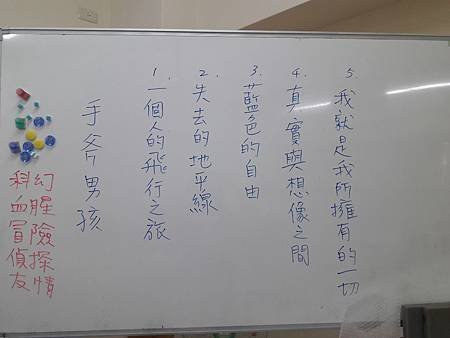 手斧男孩
1. 一個人的飛行之旅
2. 失去的地平線
3. 藍色的自由
4. 真實與想像之間
5. 我就是我所擁有的一切
科幻
血腥
冒險
偵探
友情